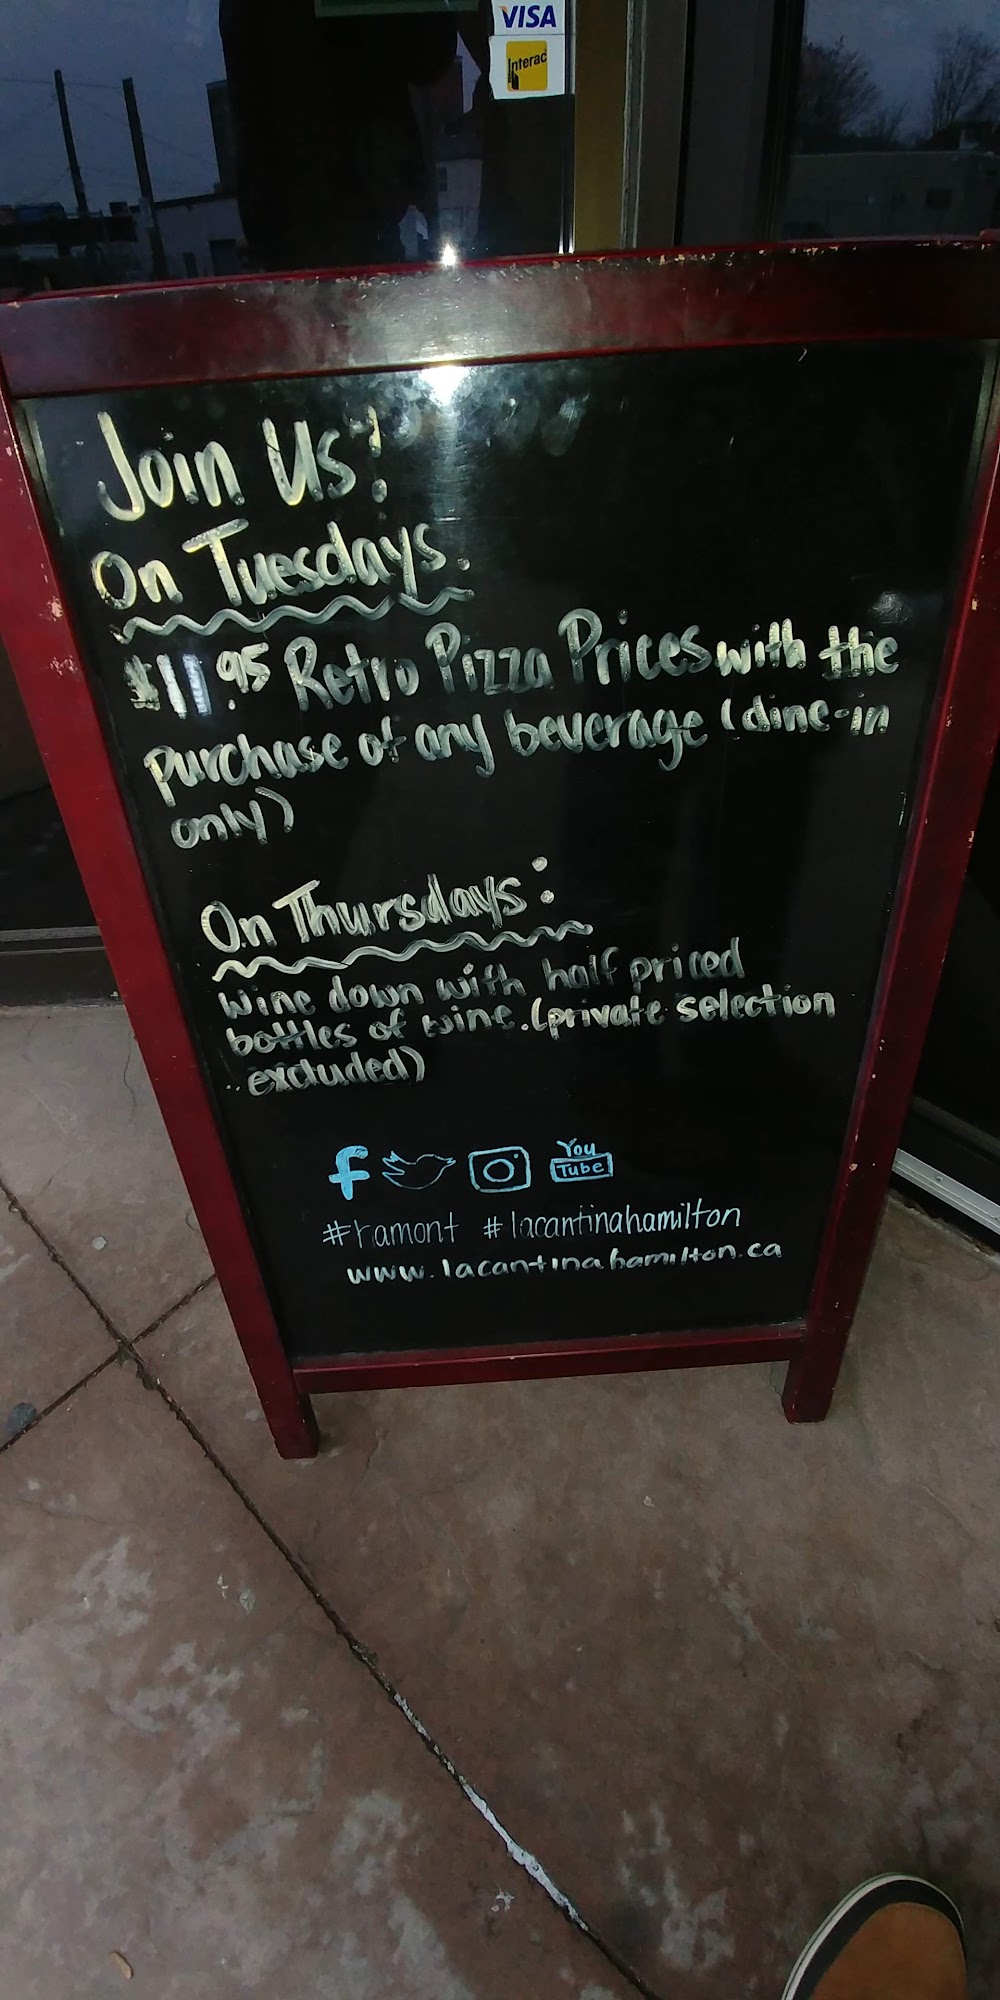 VISA
Interac
Join Us!
On Tuesdays.
$11.95 Retro Pizza Prices with the
purchase of any beverage (dine-in
only)
On Thursdays:
Wine down with half priced
bottles of wine. (private selection
excluded)
f You
Tube
#hamont #lacantinahamilton
www.lacantinahamilton.ca